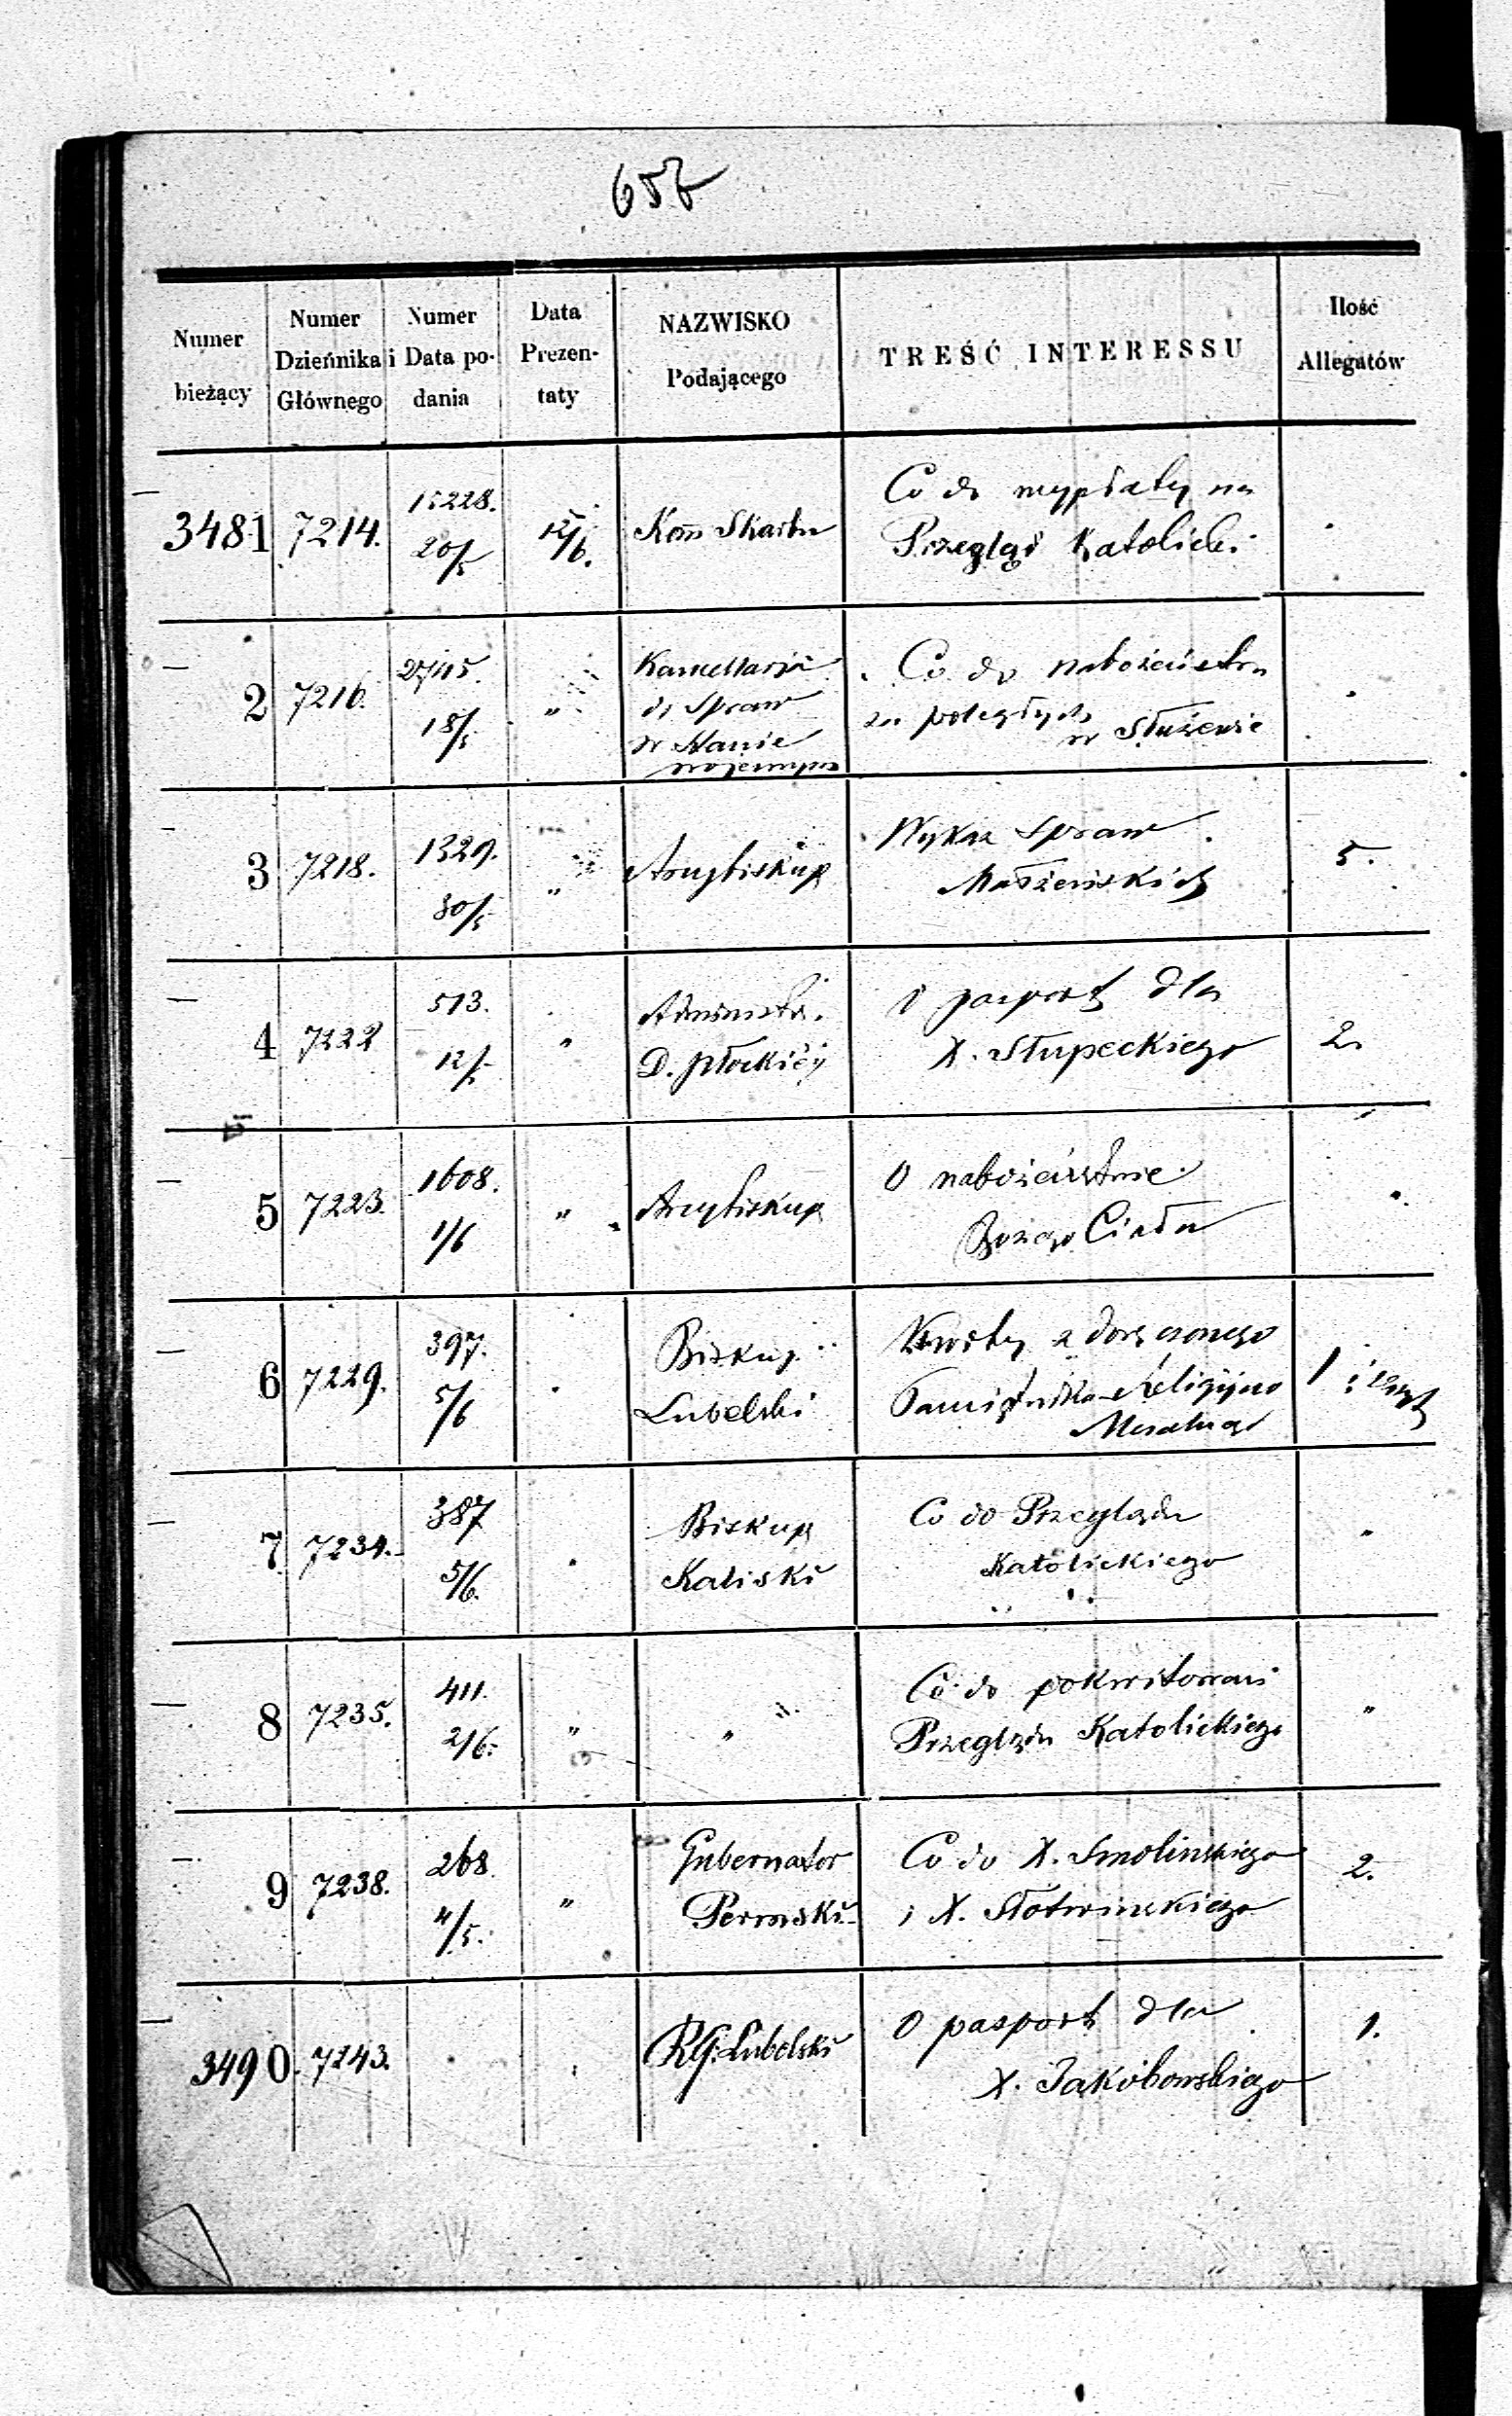 657
Numer bieżący | Numer Dzieńnika Głównego | Numer i Data podania | Data Prezentaty | NAZWISKO Podającego | TREŚĆ INTERESSU | Ilość Allegatów
3481 | 7214. | 15228. 20/5 | 12/6. | Kom Skarbu | Co do wypłaty na Przegląd Katolicki
2 | 7216. | 18/5 | " | Kancellarja do Spraw w Stanie | Co do nabożeństwa za poległych w Służewie
3 | 7218. | 1329. 30/5 | " | Arcybiskup | Wykaz Spraw Małżeńskich | 5.
4 | 7222 | 513. 12/5 | " | D. Płockiéj | O pasport dla X. Słupeckiego | 2.
5 | 7223. | 1608. 1/6 | " | Arcybiskup | O nabożeństwie Bożego Ciała
6 | 7229. | 397. 5/6 | Biskup Lubelski | Kwity z doręczonego Pamiętnika Religijno | 1
7 | 7234. | 387 5/6. | Biskup Kaliski | Co do Przeglądu Katolickiego | "
8 | 7235. | 411. 2/6. | " | " | Co do pokwitowań Przeglądu Katolickiego | "
9 | 7238. | 268 4/5. | " | Gubernator Permski | Co do X. Smolińskiego i X. Słotwińskiego | 2.
3490. | 7243. | RG. Lubelski | O pasport dla X. Jakóbowskiego | 1.